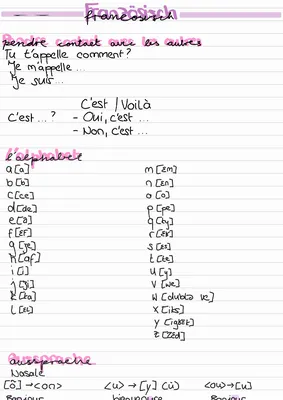 Französisch
prendre contact avec les autres
Tu t'appelle comment?
Je m'appelle ...
Je suis ...
C'est / Voilà
C'est ... ? - Oui, c'est ...
- Non, c'est ...
l'alphabet
a [a] m [ɛm]
b [b] n [ɛn]
c [ce] o [o]
d [de] p [pe]
e [ə] q [ky]
f [ɛf] r [ɛʁ]
g [ʒe] s [ɛs]
h [aʃ] t [te]
i [i] u [y]
j [ʒi] v [ve]
k [ka] w [dublə ve]
l [ɛl] x [iks]
y [igʁɛk]
z [zɛd]
Aussprache
Nasale
[õ] → <on> <u> → [y] (ü) <ou> → [u]
Bonjour Bonjour